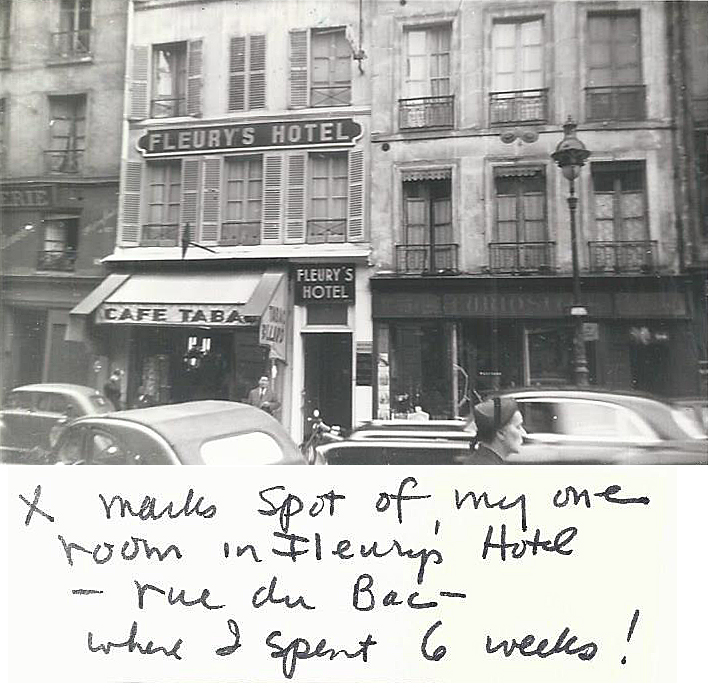 FLEURY'S HOTEL
ERIE
FLEURY'S
HOTEL
CAFE TABA
TABAC
BILLARD
X marks spot of my one
room in Fleury's Hotel
- rue du Bac -
where I spent 6 weeks!